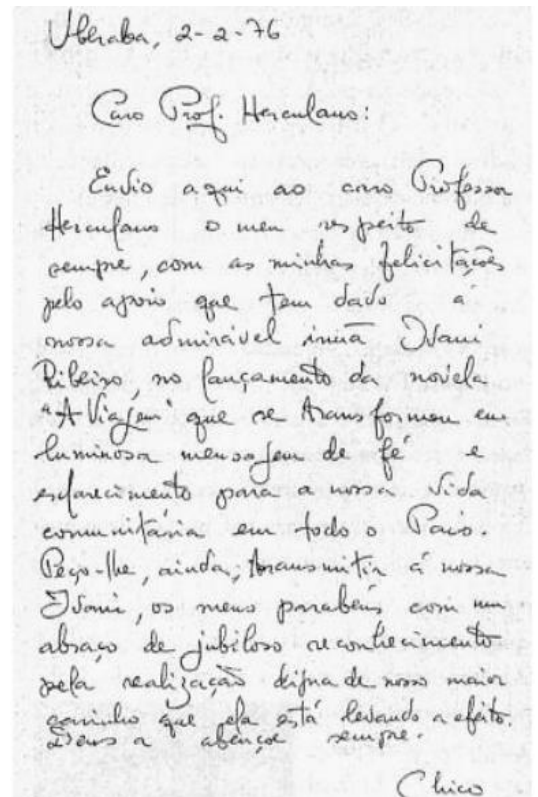 Uberaba, 2-2-76
Caro Prof. Herculano:
Envio aqui ao caro Professor
Herculano o meu respeito de
sempre, com as minhas felicitações
pelo apoio que tem dado à
nossa admirável irmã Ivani
Ribeiro, no lançamento da novela
"A Viagem" que se transformou em
luminosa mensagem de fé e
esclarecimento para a nossa vida
comunitária em todo o País.
Peço-lhe, ainda, transmitir à nossa
Ivani, os meus parabéns com um
abraço de jubiloso reconhecimento
pela realização digna de nosso maior
carinho que ela está levando a efeito.
Deus a abençoe sempre.
Chico